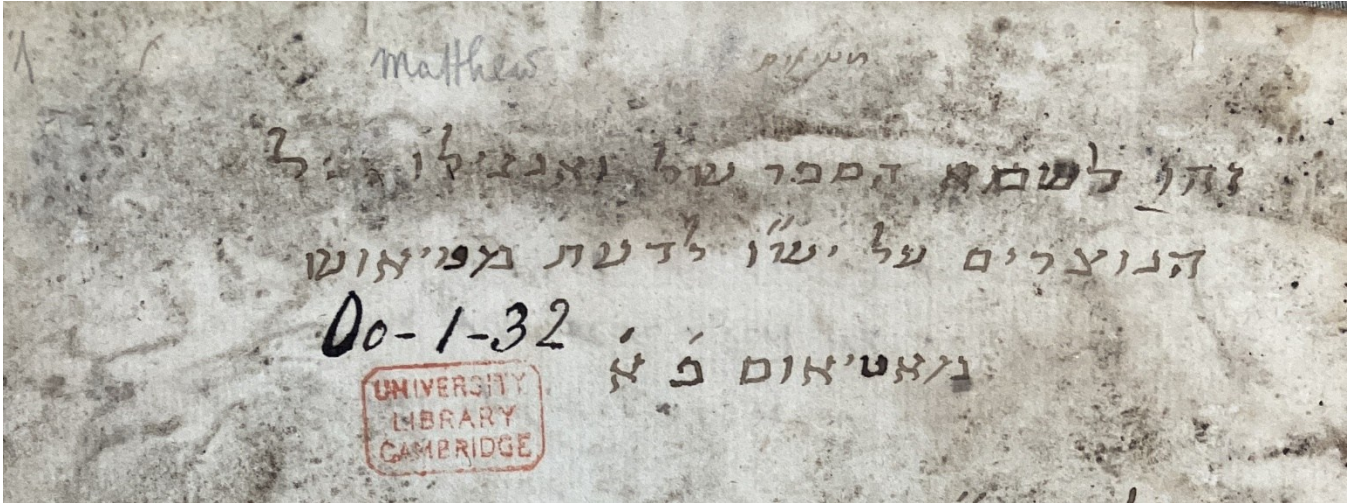 Matthew
זהו לשמא הספר של ואנגילו של
הנוצרים על יש״ו לדעת מטיאוש
Oo-1-32
מאטיאוס פ׳ א׳
UNIVERSITY
LIBRARY
CAMBRIDGE